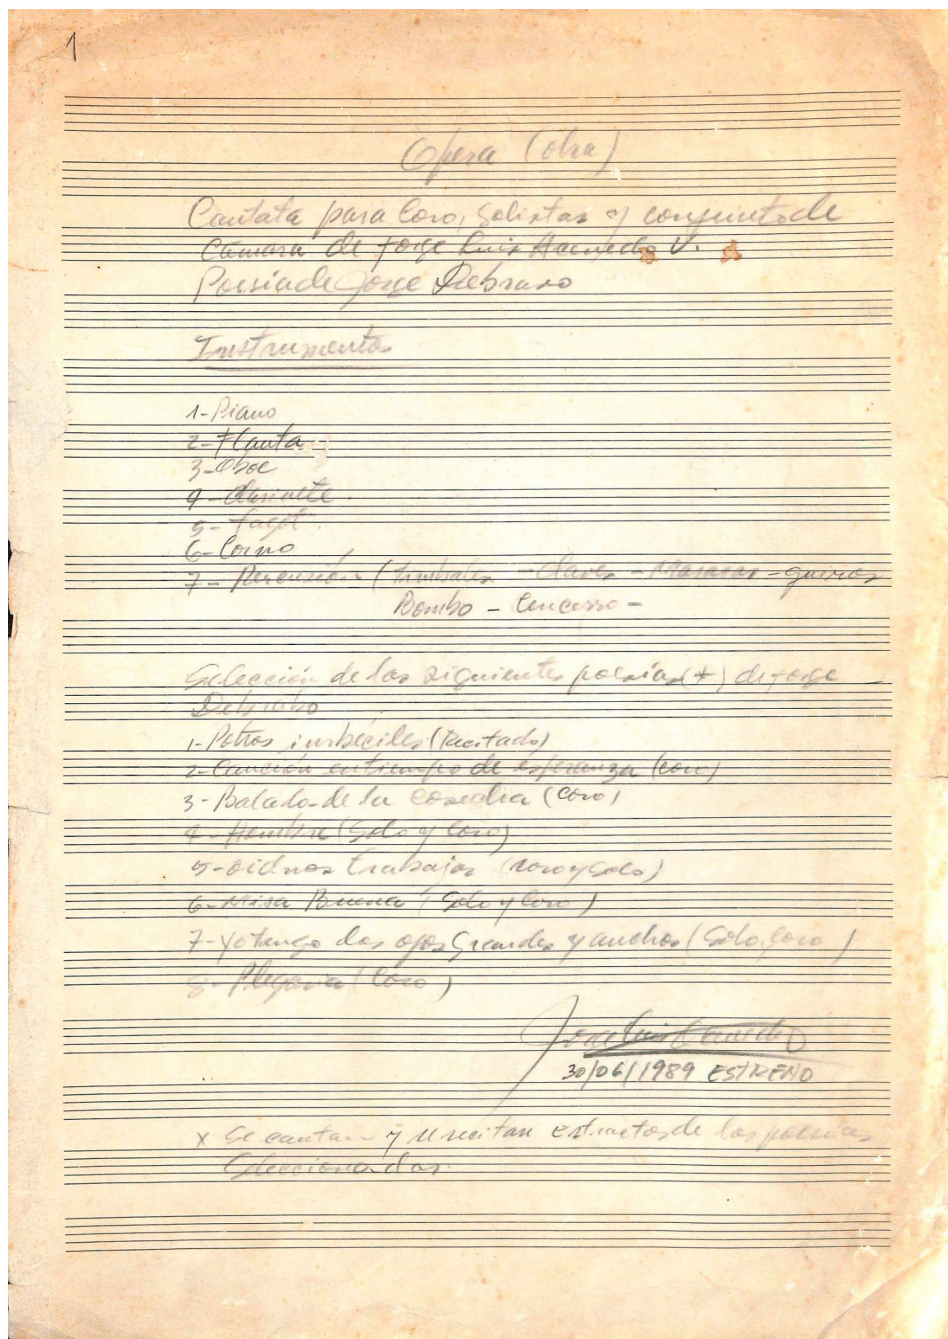 1
Opera (obra)
Cantata para Coro, Solistas y conjunto de
Cámara de Jorge Luis Acevedo V.
Poesía de Jorge Debravo
Instrumentos
1- Piano
2- Flauta
3- Oboe
4- Clarinete
5- Fagot
6- Corno
7- Percusión (timbales - claves - Maracas - guiros
Bombo - Cencerro -
Selección de las siguientes poesías (*) de Jorge
Debrabo
1- Potros imbéciles (Recitado)
2- Canción en tiempo de esperanza (coro)
3- Balada de la Cosecha (Coro)
4- Hombre (Solo y Coro)
5- oidnos trabajar (coro y solo)
6- Misa Buena (Solo y Coro)
7- Yo tengo dos ojos grandes y anchos (Solo, Coro)
8- Plegaria (Coro)
Jorge Luis Acevedo
30/06/1989 ESTRENO
x Se cantan y recitan Extractos de las poesías
Seleccionadas.